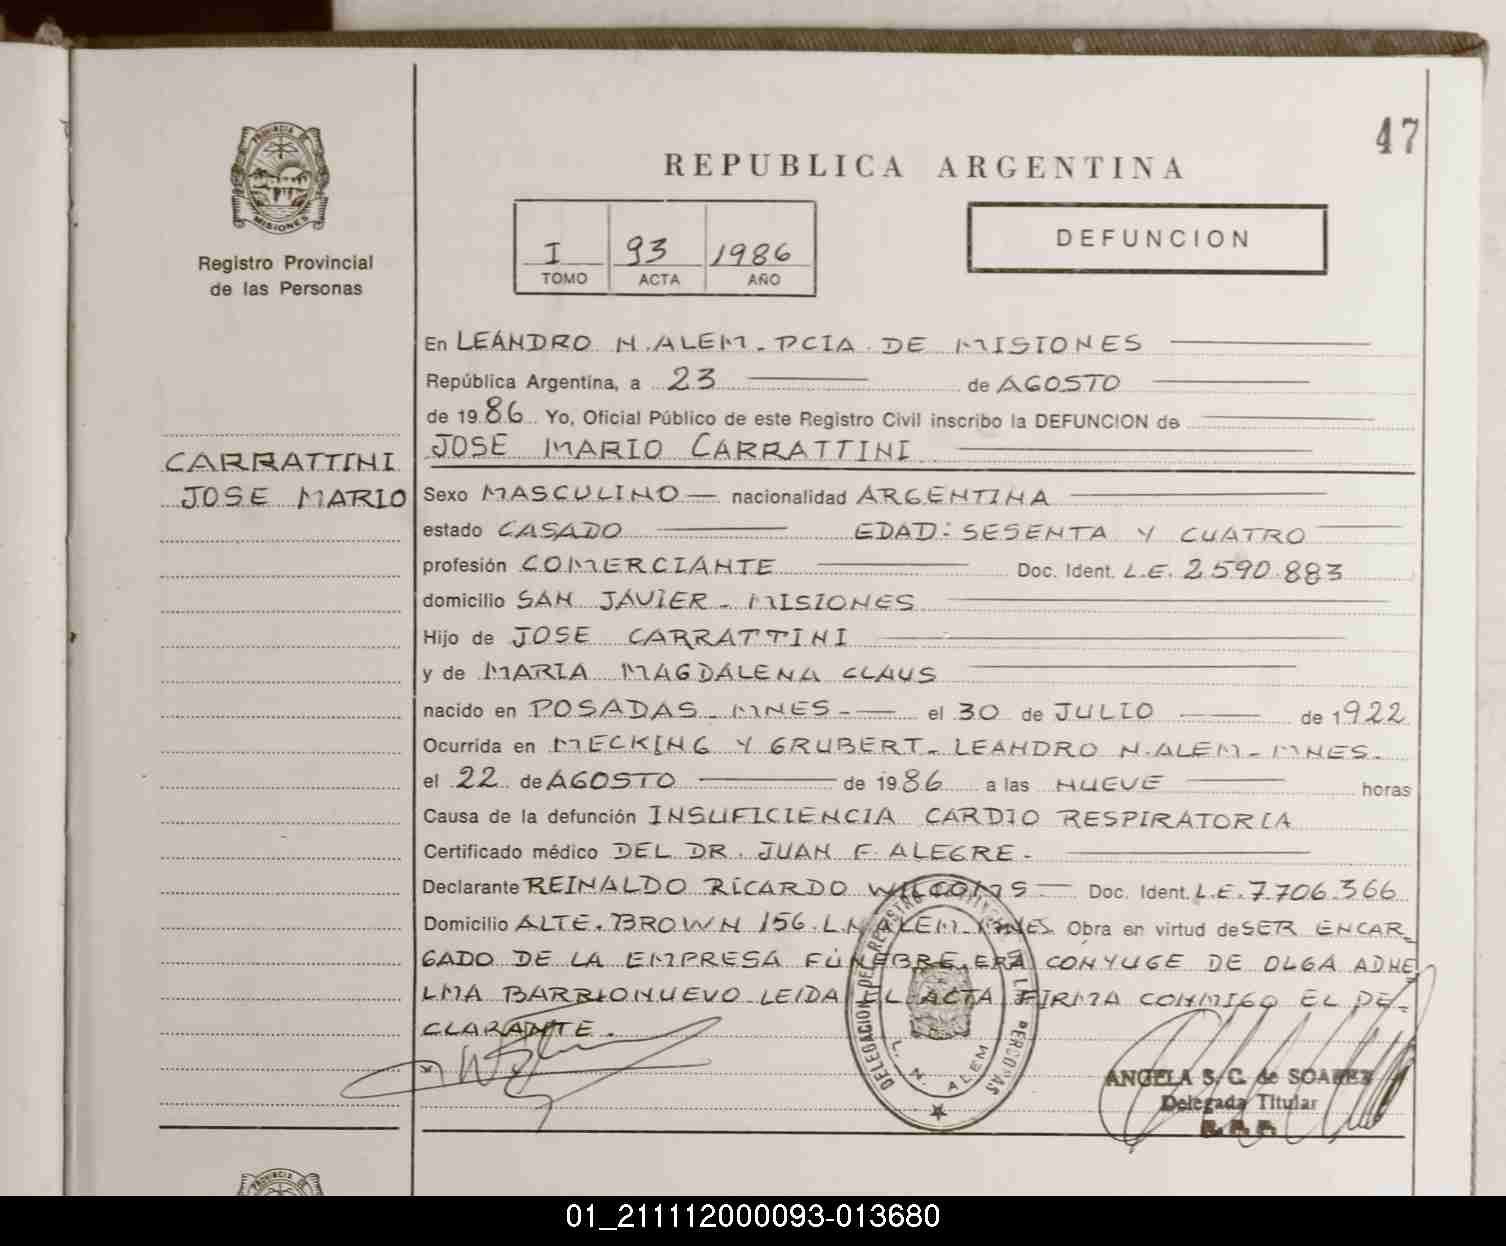 47
PROVINCIA DE
MISIONES
REPUBLICA ARGENTINA
Registro Provincial
de las Personas
I 93 1986
TOMO ACTA AÑO
DEFUNCION
En LEANDRO N. ALEM - PCIA. DE MISIONES
República Argentina, a 23 de AGOSTO
de 1986 Yo, Oficial Público de este Registro Civil inscribo la DEFUNCION de
JOSE MARIO CARRATTINI
CARRATTINI
JOSE MARIO
Sexo MASCULINO — nacionalidad ARGENTINA
estado CASADO EDAD: SESENTA Y CUATRO
profesión COMERCIANTE Doc. Ident. L.E. 2.590.883
domicilio SAN JAVIER - MISIONES
Hijo de JOSE CARRATTINI
y de MARIA MAGDALENA CLAUS
nacido en POSADAS - MNES - el 30 de JULIO de 1922
Ocurrida en MECKING Y GRUBERT - LEANDRO N. ALEM - MNES -
el 22 de AGOSTO de 1986 a las NUEVE horas
Causa de la defunción INSUFICIENCIA CARDIO RESPIRATORIA
Certificado médico DEL DR. JUAN F. ALEGRE -
Declarante REINALDO RICARDO Doc. Ident. L.E. 7.706.366
Domicilio ALTE. BROWN 156. L.N. ALEM - MNES. Obra en virtud de SER ENCAR-
GADO DE LA EMPRESA FÚNEBRE. ERA CONYUGE DE OLGA ADHE
LMA BARRIONUEVO LEIDA EL ACTA FIRMA CONMIGO EL DE-
CLARANTE.
DELEGACION DEL REGISTRO PROVINCIAL DE LAS PERSONAS
L. N. ALEM
ANGELA S. C. de SOAREZ
Delegada Titular
PROVINCIA
01_211112000093-013680